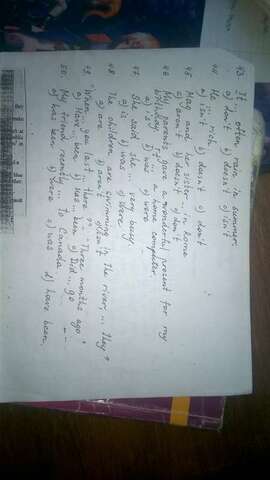 43. It often rain in summer.
a) don't b) doesn't c) isn't
44. He ... rich.
a) isn't b) doesn't c) don't
45. Mag and her sister ... in Rome
a) aren't b) doesn't c) don't
46. My parents gave a wonderful present for my
birthday. It ... a home computer.
a) is b) was c) were
47. She said she ... very busy.
a) is b) was c) were
48. The children are swimming in the river, ... they?
a) are b) aren't c)
49. "When ... you last ... there?" "Three months ago"
a) Have ... been b) Has ... been c) Did ... go
50. My friend recently ... to Canada
a) has been b) were c) was d) have been